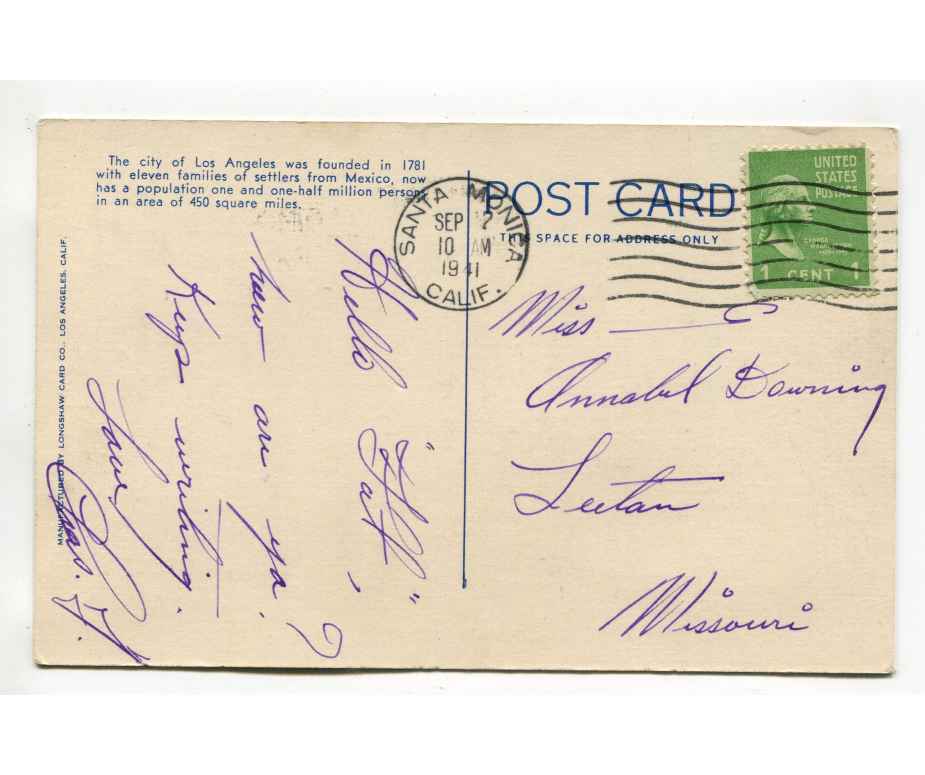 The city of Los Angeles was founded in 1781
with eleven families of settlers from Mexico, now
has a population one and one-half million persons
in an area of 450 square miles.
MANUFACTURED BY LONGSHAW CARD CO., LOS ANGELES, CALIF.
Hello "Fat",
how are ya?
Keep writing.
Love,
Chas. F.
POST CARD
THIS SPACE FOR ADDRESS ONLY
SANTA MONICA
SEP 7
10 AM
1941
CALIF.
UNITED
STATES
POSTAGE
GEORGE
1 CENT 1
Miss
Annabel Downing
Leetan
Missouri